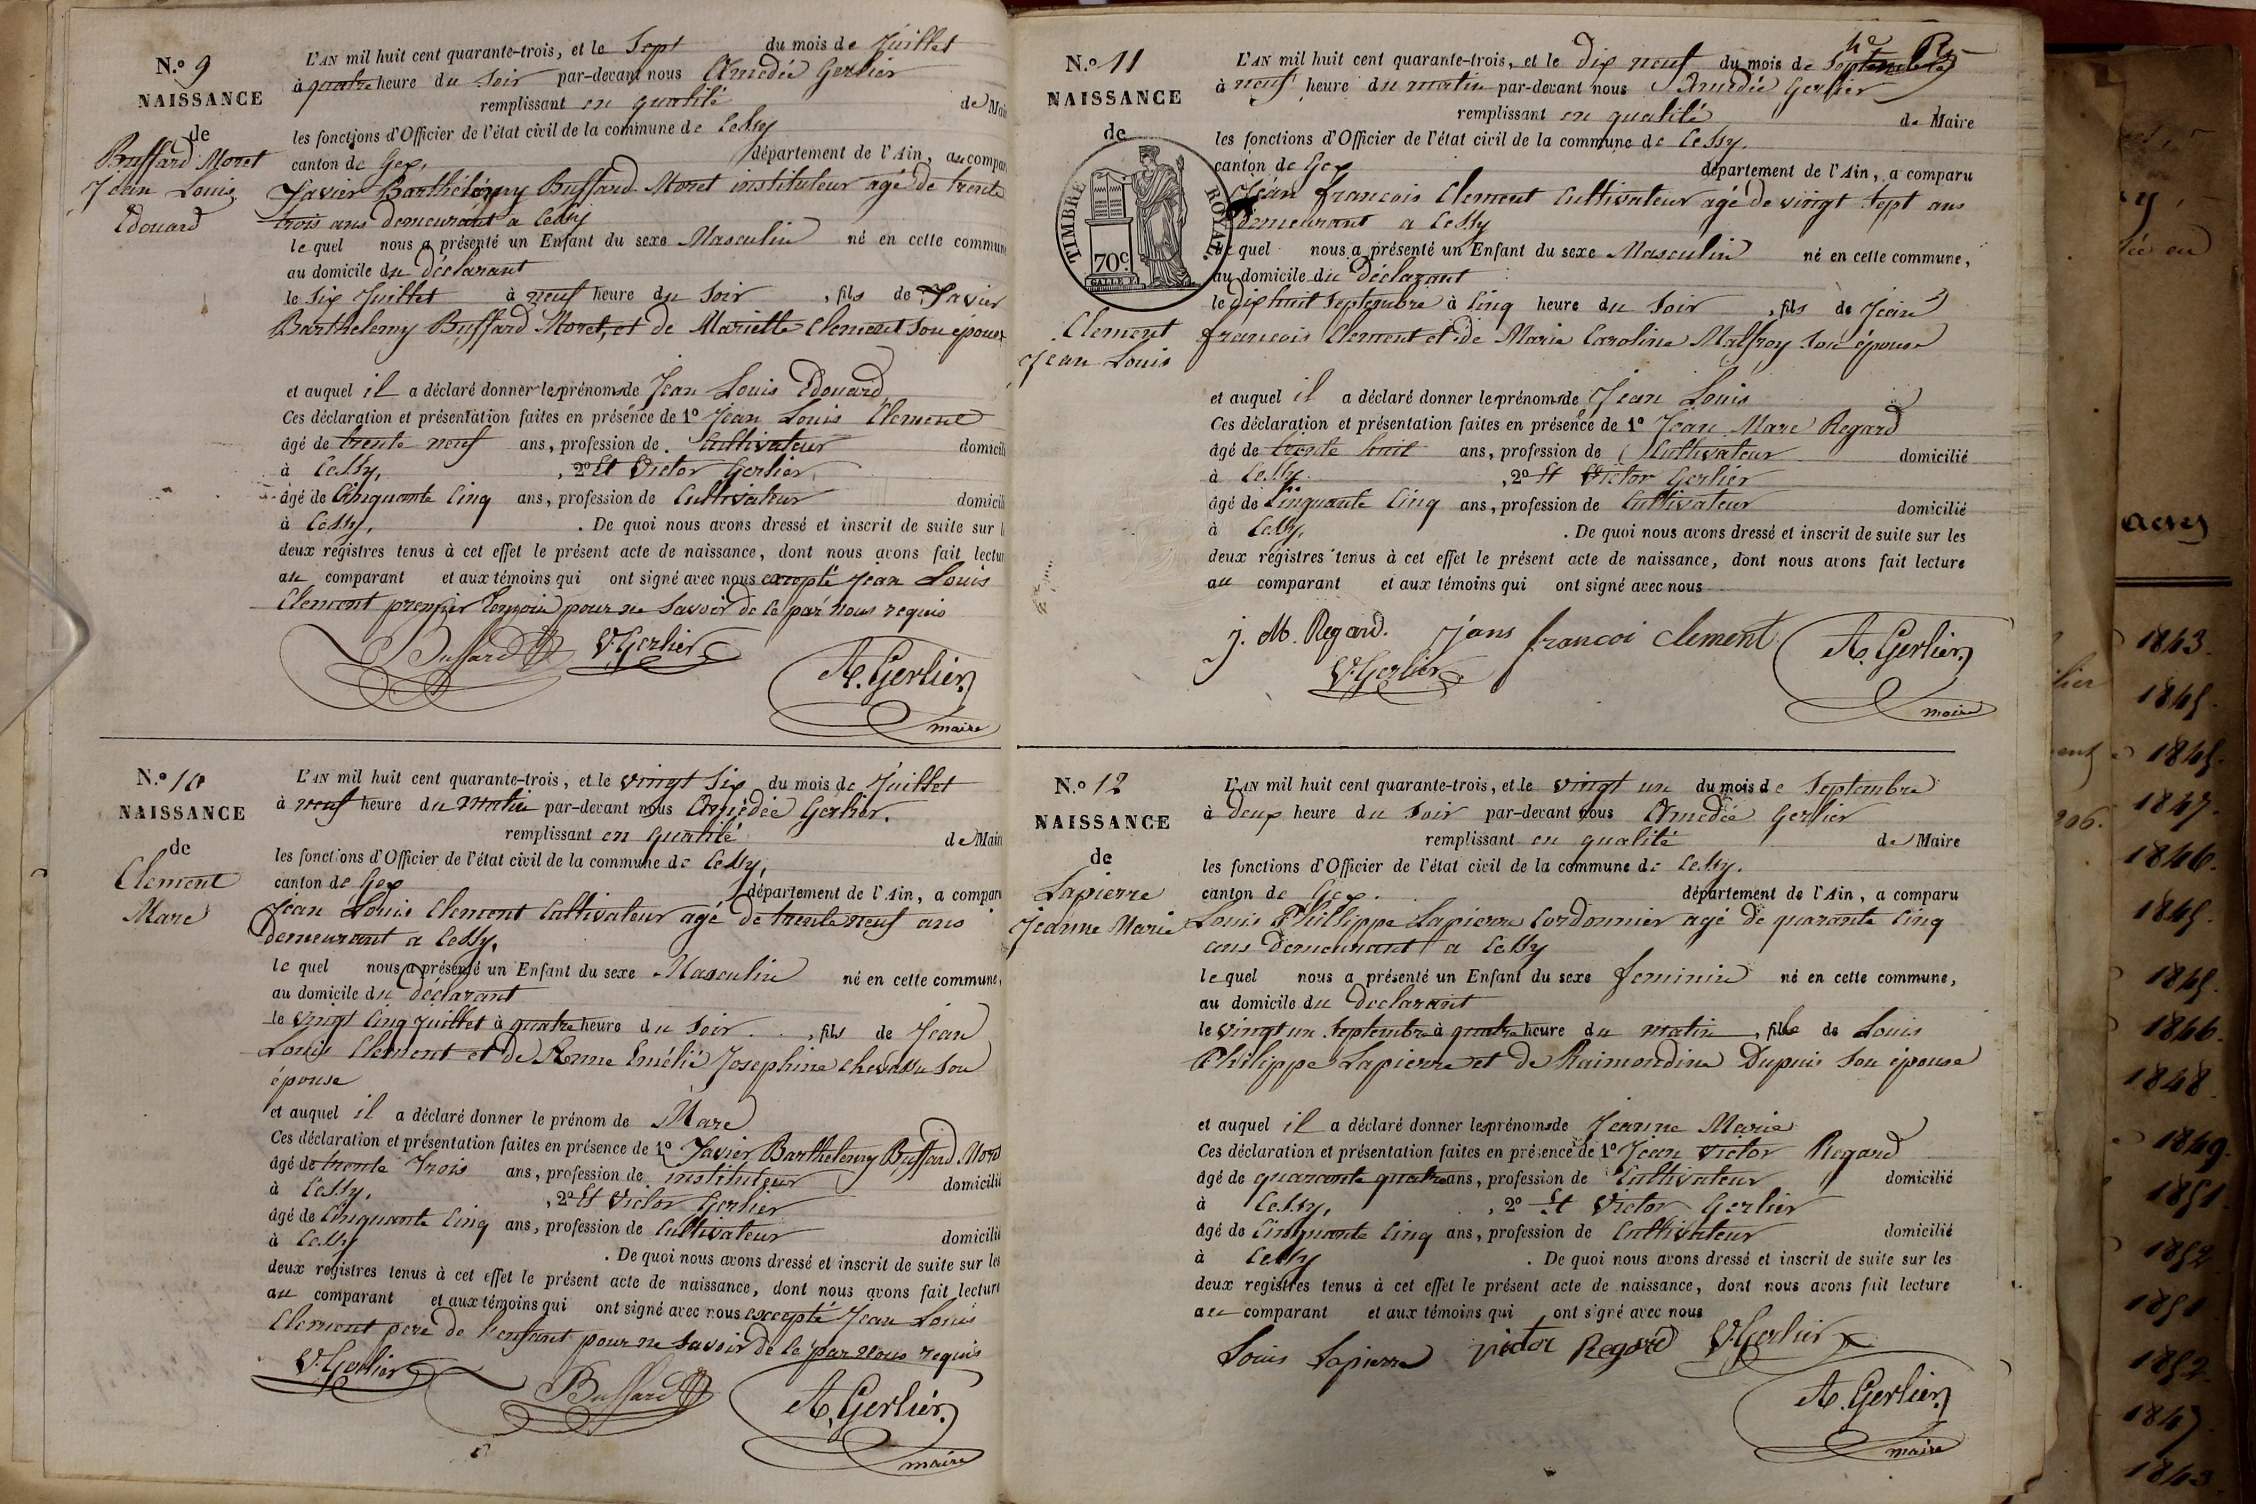 N.º 9
NAISSANCE
de
Buffard Moret
Jean Louis
Edouard
L'AN mil huit cent quarante-trois, et le Sept du mois de Juillet
à quatre heure du Soir par-devant nous Amedée Gerlier
remplissant en qualité de Mai
les fonctions d'Officier de l'état civil de la commune de Cessy
canton de Gex, département de l'Ain, a compa
Javier Barthélémy Buffard Moret instituteur agé de trente
trois ans demeurant a Cessy
le quel nous a présenté un Enfant du sexe Masculin né en cette commun
au domicile du déclarant
le Six Juillet à neuf heure du Soir, fils de Javier
Barthelemy Buffard Moret, et de Mariette Clement Son épouse
et auquel il a déclaré donner les prénoms de Jean Louis Edouard
Ces déclaration et présentation faites en présence de 1º Jean Louis Clement
âgé de trente neuf ans, profession de Cultivateur domicili
à Cessy, , 2º Et Victor Gerlier
âgé de Cinquante Cinq ans, profession de Cultivateur domicili
à Cessy, . De quoi nous avons dressé et inscrit de suite sur l
deux registres tenus à cet effet le présent acte de naissance, dont nous avons fait lectur
au comparant et aux témoins qui ont signé avec nous excepté Jean Louis
Clement premier temoin pour ne Savoir de ce par nous requis
Buffard V. Gerlier
A. Gerlier
maire
N.º 10
NAISSANCE
de
Clement
Marc
L'AN mil huit cent quarante-trois, et le vingt Six du mois de Juillet
à neuf heure du Matin par-devant nous Amédée Gerlier.
remplissant en qualité de Mair
les fonctions d'Officier de l'état civil de la commune de Cessy,
canton de Gex département de l'Ain, a compar
Jean Louis Clement Cultivateur agé de trente neuf ans
Demeurant a Cessy.
le quel nous a présenté un Enfant du sexe Masculin né en cette commune,
au domicile du déclarant
le vingt Cinq Juillet à quatre heure du Soir , fils de Jean
Louis Clement et de Anne Emélie Josephine Chevassu Son
épouse
et auquel il a déclaré donner le prénom de Marc
Ces déclaration et présentation faites en présence de 1º Javier Barthelemy Buffard Moret
âgé de trente Trois ans, profession de instituteur domicili
à Cessy, , 2º Et Victor Gerlier
âgé de Cinquante Cinq ans, profession de Cultivateur domicili
à Cessy . De quoi nous avons dressé et inscrit de suite sur les
deux registres tenus à cet effet le présent acte de naissance, dont nous avons fait lectur
au comparant et aux témoins qui ont signé avec nous excepté Jean Louis
Clement pere de l'enfant pour ne Savoir de ce par nous requis
V. Gerlier
Buffard A. Gerlier
maire
N.º 11
NAISSANCE
de
TIMBRE ROYAL.
70c.
Clement
Jean Louis
L'AN mil huit cent quarante-trois, et le Dix neuf du mois de Septembre
à neuf heure du matin par-devant nous Amedée Gerlier
remplissant en qualité de Maire
les fonctions d'Officier de l'état civil de la commune de Cessy.
canton de Gex département de l'Ain, a comparu
Jean francois Clement Cultivateur agé de vingt Sept ans
demeurant a Cessy
le quel nous a présenté un Enfant du sexe Masculin né en cette commune,
au domicile du déclarant
le dix huit Septembre à Cinq heure du Soir , fils de Jean
francois Clement et de Marie Caroline Malfroy Son épouse
et auquel il a déclaré donner le prénoms de Jean Louis
Ces déclaration et présentation faites en présence de 1º Jean Marc Regard
âgé de trente huit ans, profession de Cultivateur domicilié
à Cessy , 2º Et Victor Gerlier
âgé de Cinquante Cinq ans, profession de Cultivateur domicilié
à Cessy, . De quoi nous avons dressé et inscrit de suite sur les
deux registres tenus à cet effet le présent acte de naissance, dont nous avons fait lecture
au comparant et aux témoins qui ont signé avec nous
j. M. Regard. jans francoi clement
V. Gerlier A. Gerlier
maire
N.º 12
NAISSANCE
de
Lapierre
Jeanne Marie
L'AN mil huit cent quarante-trois, et le vingt un du mois de Septembre
à deux heure du Soir par-devant nous Amedée Gerlier
remplissant en qualité de Maire
les fonctions d'Officier de l'état civil de la commune de Cessy.
canton de Gex. département de l'Ain, a comparu
Louis Phillippe Lapierre Cordonnier agé de quarante Cinq
ans Demeurant a Cessy
le quel nous a présenté un Enfant du sexe feminin né en cette commune,
au domicile du declarant
le vingt un Septembre à quatre heure du matin , fille de Louis
Philippe Lapierre et de Raimondine Dupuis Son épouse
et auquel il a déclaré donner les prénoms de Jeanne Marie
Ces déclaration et présentation faites en présence de 1º Jean Victor Regard
âgé de quarante quatre ans, profession de Cultivateur domicilié
à Cessy, , 2º Et Victor Gerlier
âgé de Cinquante Cinq ans, profession de Cultivateur domicilié
à Cessy . De quoi nous avons dressé et inscrit de suite sur les
deux registres tenus à cet effet le présent acte de naissance, dont nous avons fait lecture
au comparant et aux témoins qui ont signé avec nous
Louis Lapierre victor Regard V. Gerlier
A. Gerlier
maire
actes
1843.
1845.
1845.
1847.
1846.
1845.
1845.
1846.
1848
1849.
1851.
1852
1851
1852.
1847.
1843